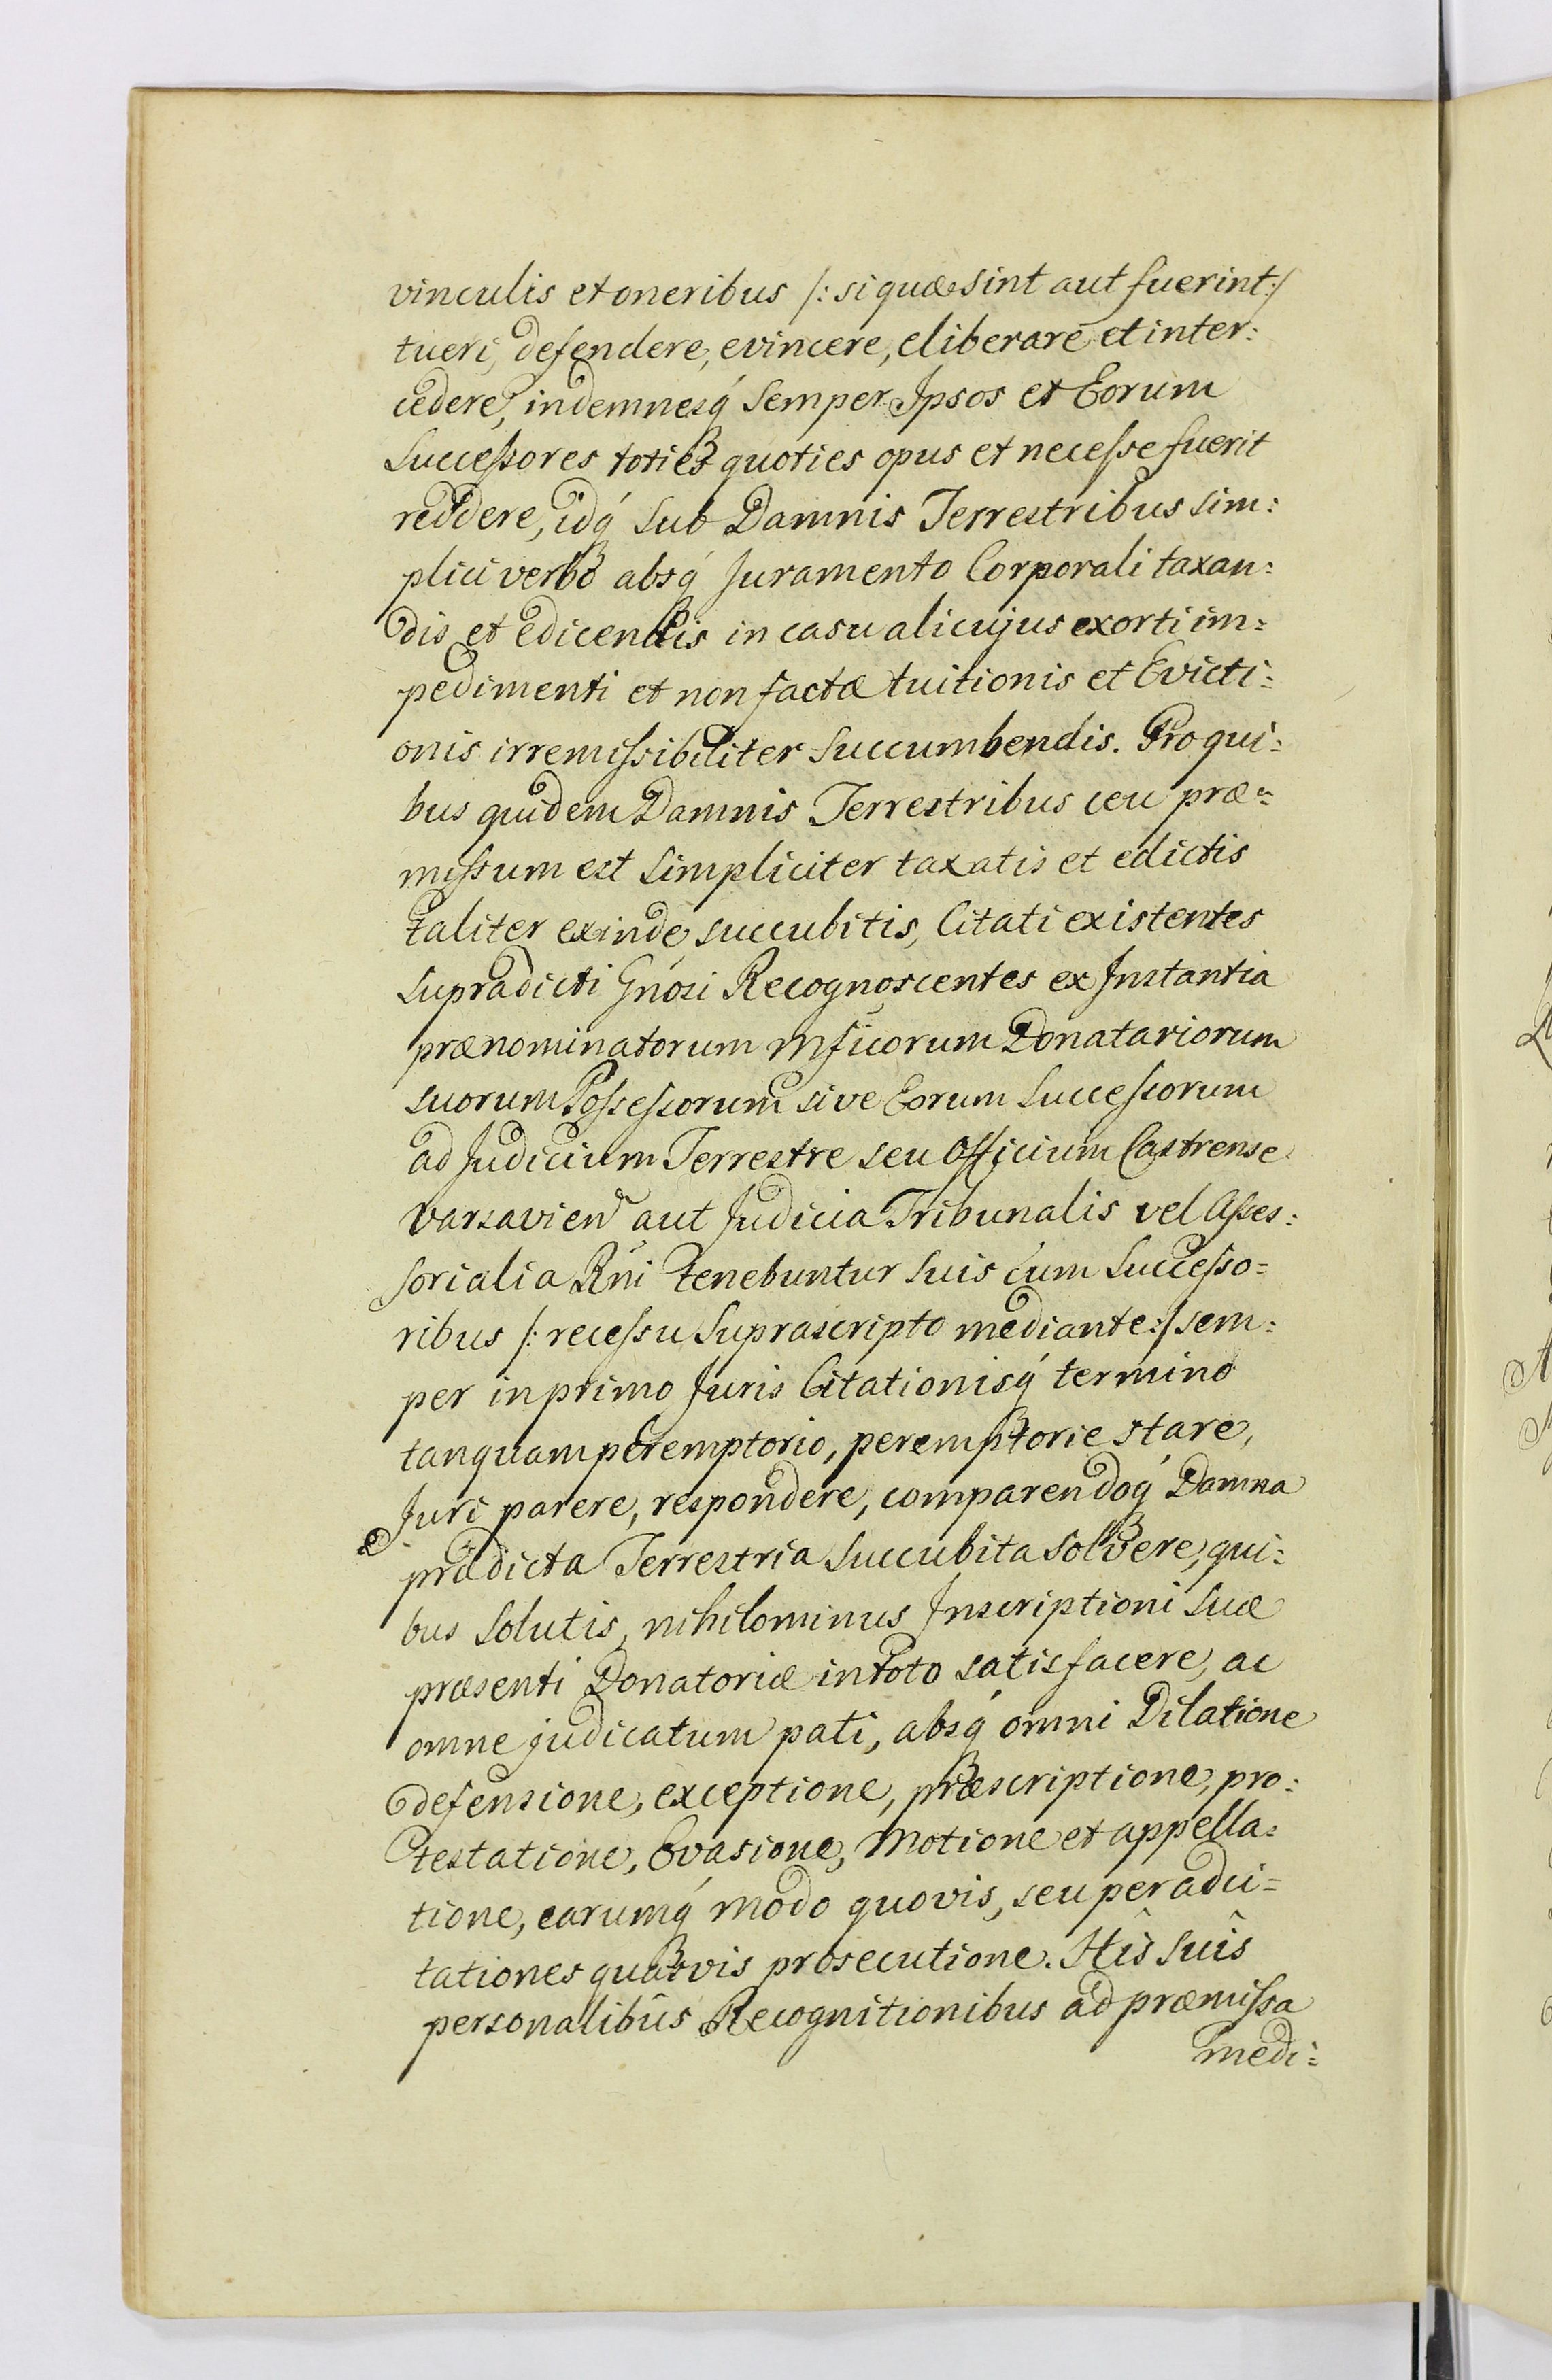 vinculis et oneribus /: si quæ sint aut fuerint :/
tueri, defendere, evincere, eliberare et inter:
cedere, indemnesq́ semper Ipsos et Eorum
Successores toties quoties opus et necesse fuerit
reddere, idq́ sub Damnis Terrestribus sim:
plici verbo absq́ Juramento Corporali taxan:
dis et edicendis in casu alicujus exorti im=
pedimenti et non factæ tuitionis et Evicti:
onis irremissibiliter succumbendis. Pro qui:
bus quidem Damnis Terrestribus ceu præ=
missum est simpliciter taxatis et edictis
taliter exinde succubitis, Citati existentes
supradicti Gnósi Recognoscentes ex Instantia
prænominatorum Mficorum Donatariorum
suorum Possessorum sive Eorum Successorum
ad Judicium Terrestre seu Officium Castrense
Varsavien aut Judicia Tribunalis vel Asses:
sorialia Rńi tenebuntur suis cum Successo=
ribus /: recessu suprascripto mediante :/ sem:
per in primo Juris Citationisq́ termino
tanquam peremptorio, peremptorie stare,
Juri parere, respondere, comparendoq́ Damna
prædicta Terrestria succubita solvere, qui:
bus solutis, nihilominus Inscriptioni suæ
præsenti Donatoriæ in toto satisfacere, ac
omne judicatum pati, absq́ omni Dilatione
defensione, exceptione, præscriptione, pro:
testatione, Evasione, Motione et appella:
tione, earumq́ modo quovis, seu per adci=
tationes quasvis prosecutione. Hîs suîs
personalibûs Recognitionibus ad præmissa
medi: